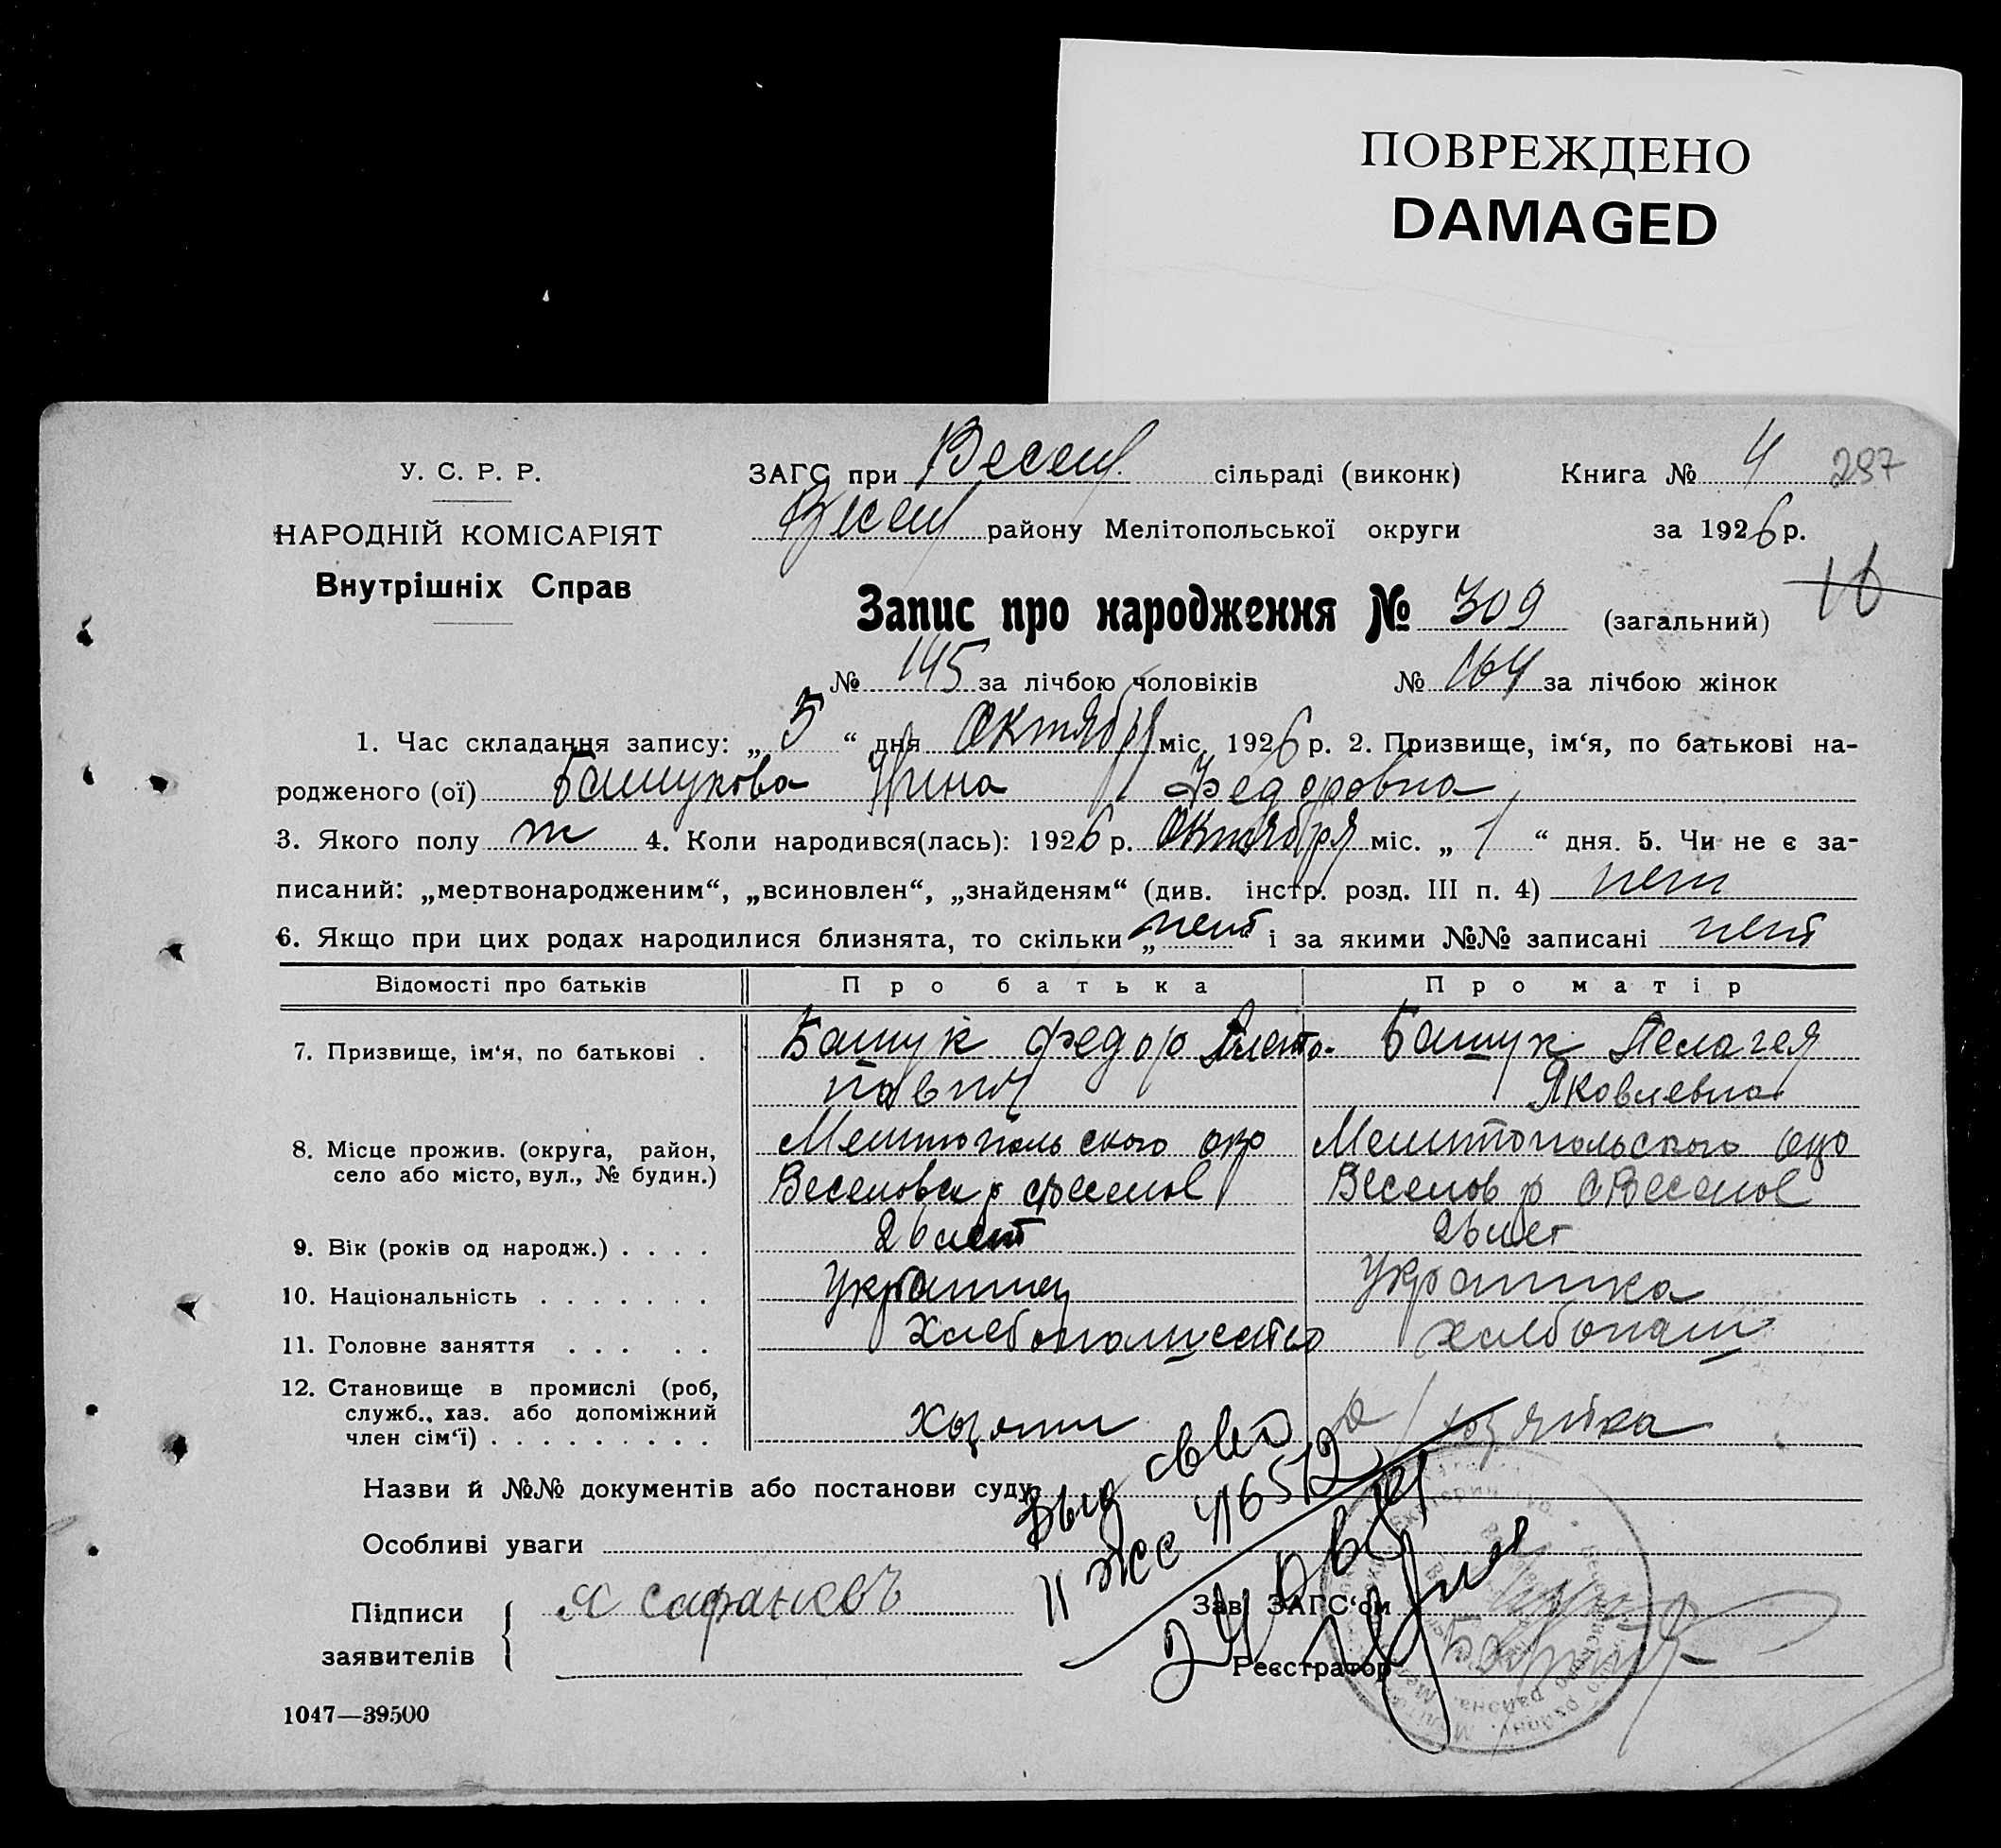 ПОВРЕЖДЕНО
DAMAGED
У. С. Р. Р.
НАРОДНІЙ КОМІСАРІЯТ
Внутрішніх Справ
ЗАГС при Весел. сільраді (виконк) Книга № 4 297
Весел району Мелітопольської округи за 1926 р.
Запис про народження № 309 (загальний) 16
№ 145 за лічбою чоловіків № 164 за лічбою жінок
1. Час складання запису: „ 5 “ дня Октября міс. 1926 р. 2. Призвище, ім‘я, по батькові на-
родженого (ої) Башукова Ирина Федоровна
3. Якого полу ж 4. Коли народився(лась): 1926 р. Октября міс. „ 1 “ дня. 5. Чи не є за-
писаний: „мертвонародженим“, „всиновлен“, „знайденям“ (див. інстр. розд. III п. 4) нет
6. Якщо при цих родах народилися близнята, то скільки „нет“ і за якими №№ записані нет
Відомості про батьків Про батька Про матір
7. Призвище, ім‘я, по батькові . Башук Федор Башук Пелагея
Яковлевна
8. Місце прожив. (округа, район, село або місто, вул., № будин.) Мелитопольского окр Мелитопольского окр
Веселовск р с Веселое Веселов р с Веселое
9. Вік (років од народж.) . . . . 26 лет 26 лет
10. Національність . . . . . . . Украинец Украинка
11. Головне заняття . . . . . Хлебопашество хлебопаш
12. Становище в промислі (роб, служб., хаз. або допоміжний член сім‘ї) . . . . . . . . . Хозяин хозяйка
Назви й №№ документів або постанови суду
Выд свид
II ЖС 416512
Особливі уваги
Підписи заявителів { Я Сафанков
Зав. ЗАГС‘ом
Реєстратор
1047—39500